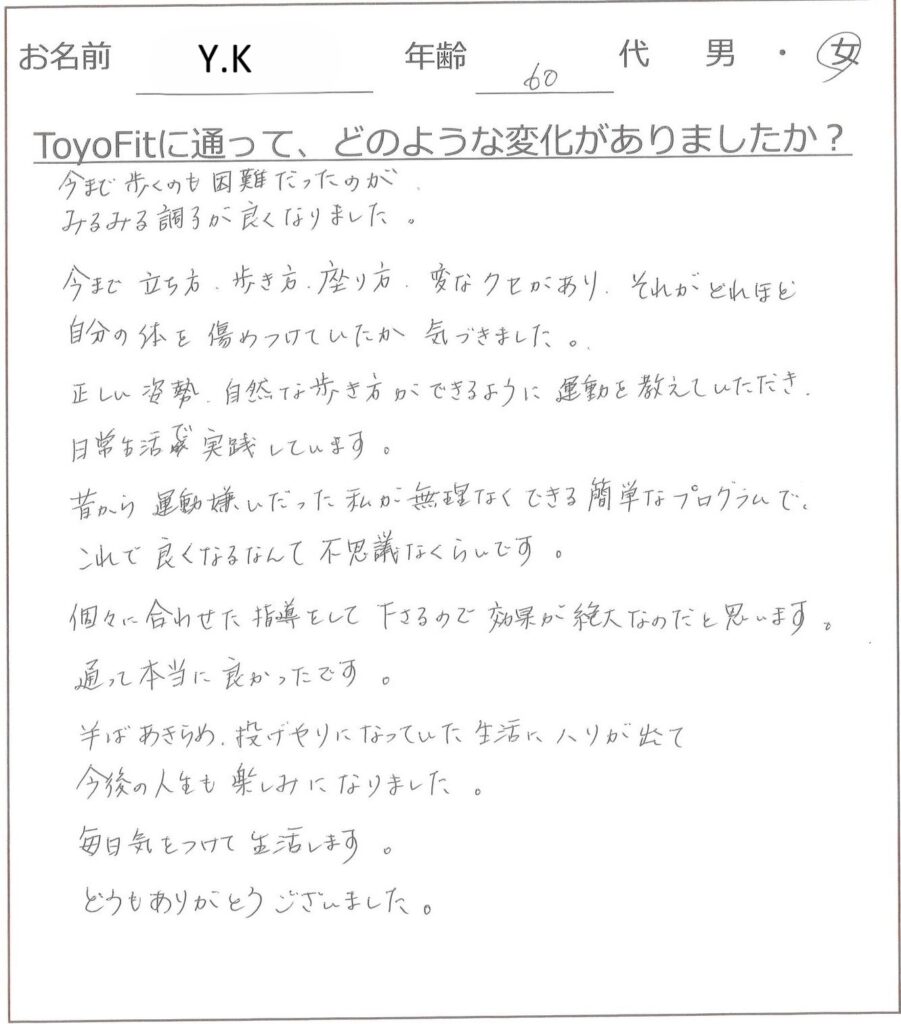 お名前 Y.K 年齢 60 代 男 ・ 女
ToyoFitに通って、どのような変化がありましたか？
今まで歩くのも困難だったのが、
みるみる調子が良くなりました。
今まで立ち方、歩き方、座り方、変なクセがあり、それがどれほど
自分の体を傷めつけていたか気づきました。
正しい姿勢、自然な歩き方ができるように運動を教えていただき、
日常生活で実践しています。
昔から運動嫌いだった私が無理なくできる簡単なプログラムで、
これで良くなるなんて不思議なくらいです。
個々に合わせた指導をして下さるので効果が絶大なのだと思います。
通って本当に良かったです。
半ばあきらめ、投げやりになっていた生活にハリが出て
今後の人生も楽しみになりました。
毎日気をつけて生活します。
どうもありがとうございました。